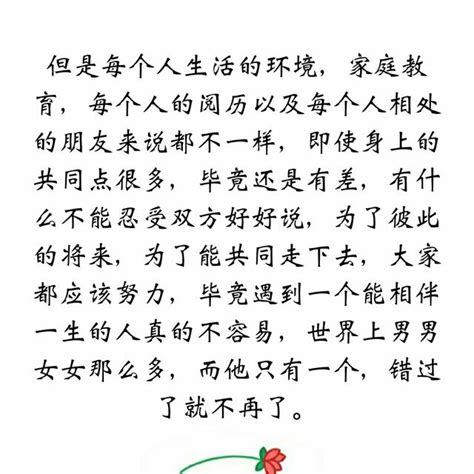 但是每个人生活的环境，家庭教
育，每个人的阅历以及每个人相处
的朋友来说都不一样，即使身上的
共同点很多，毕竟还是有差，有什
么不能忍受双方好好说，为了彼此
的将来，为了能共同走下去，大家
都应该努力，毕竟遇到一个能相伴
一生的人真的不容易，世界上男男
女女那么多，而他只有一个，错过
了就不再了。